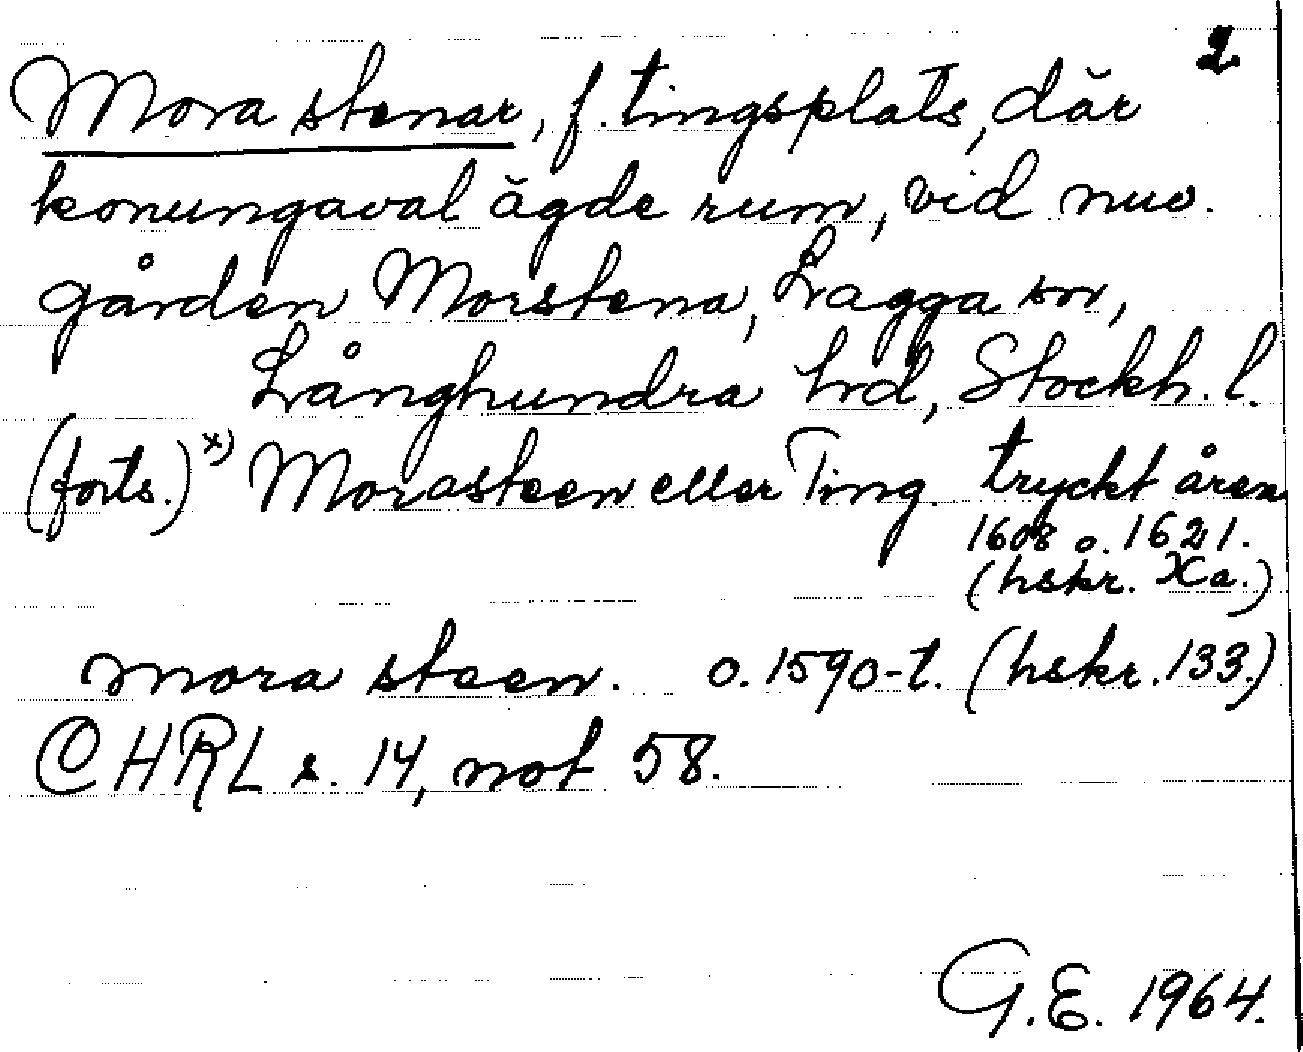 2
Mora stenar, f. tingsplats, där
konungaval ägde rum, vid nuv.
gården Morstena, Lagga sn,
Långhundra hd, Stockh. l.
(forts.) x) Morasteen eller Ting. tryckt åren
1608 o. 1621.
(hskr. Xa.)
mora steen. o. 1590-t. (hskr. 133.)
CHRL s. 14, not 58.
G.E. 1964.